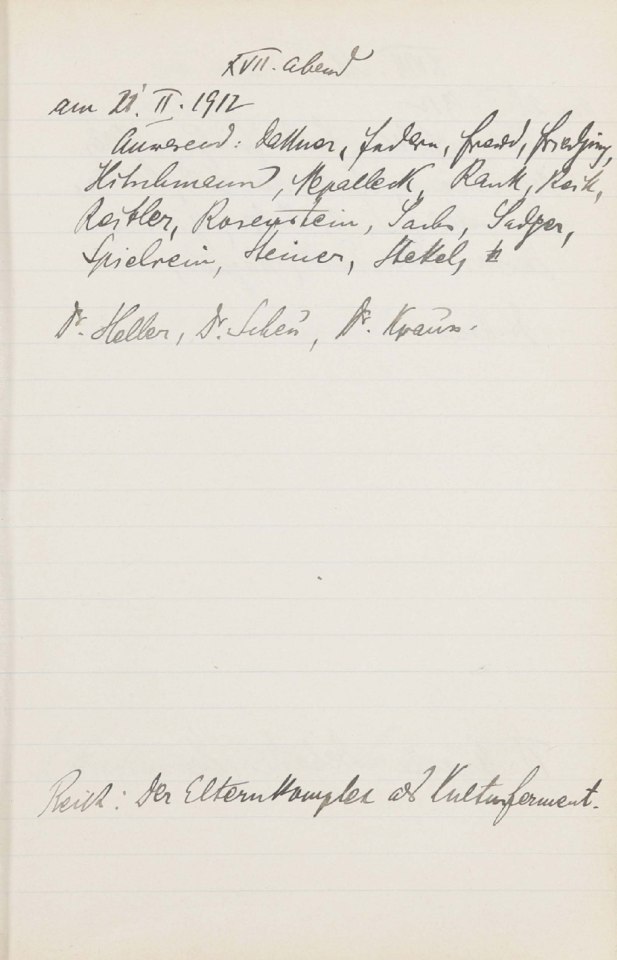 XVII. Abend
am 21. II. 1912
Anwesend: Dattner, Federn, Freud, Friedjung,
Hitschmann, Nepalleck, Rank, Reik,
Reitler, Rosenstein, Sachs, Sadger,
Spielrein, Steiner, Stekel,
Dr. Heller, Dr. Scheu, Dr. Kraus.
Reik: Der Elternkomplex als Kulturferment.